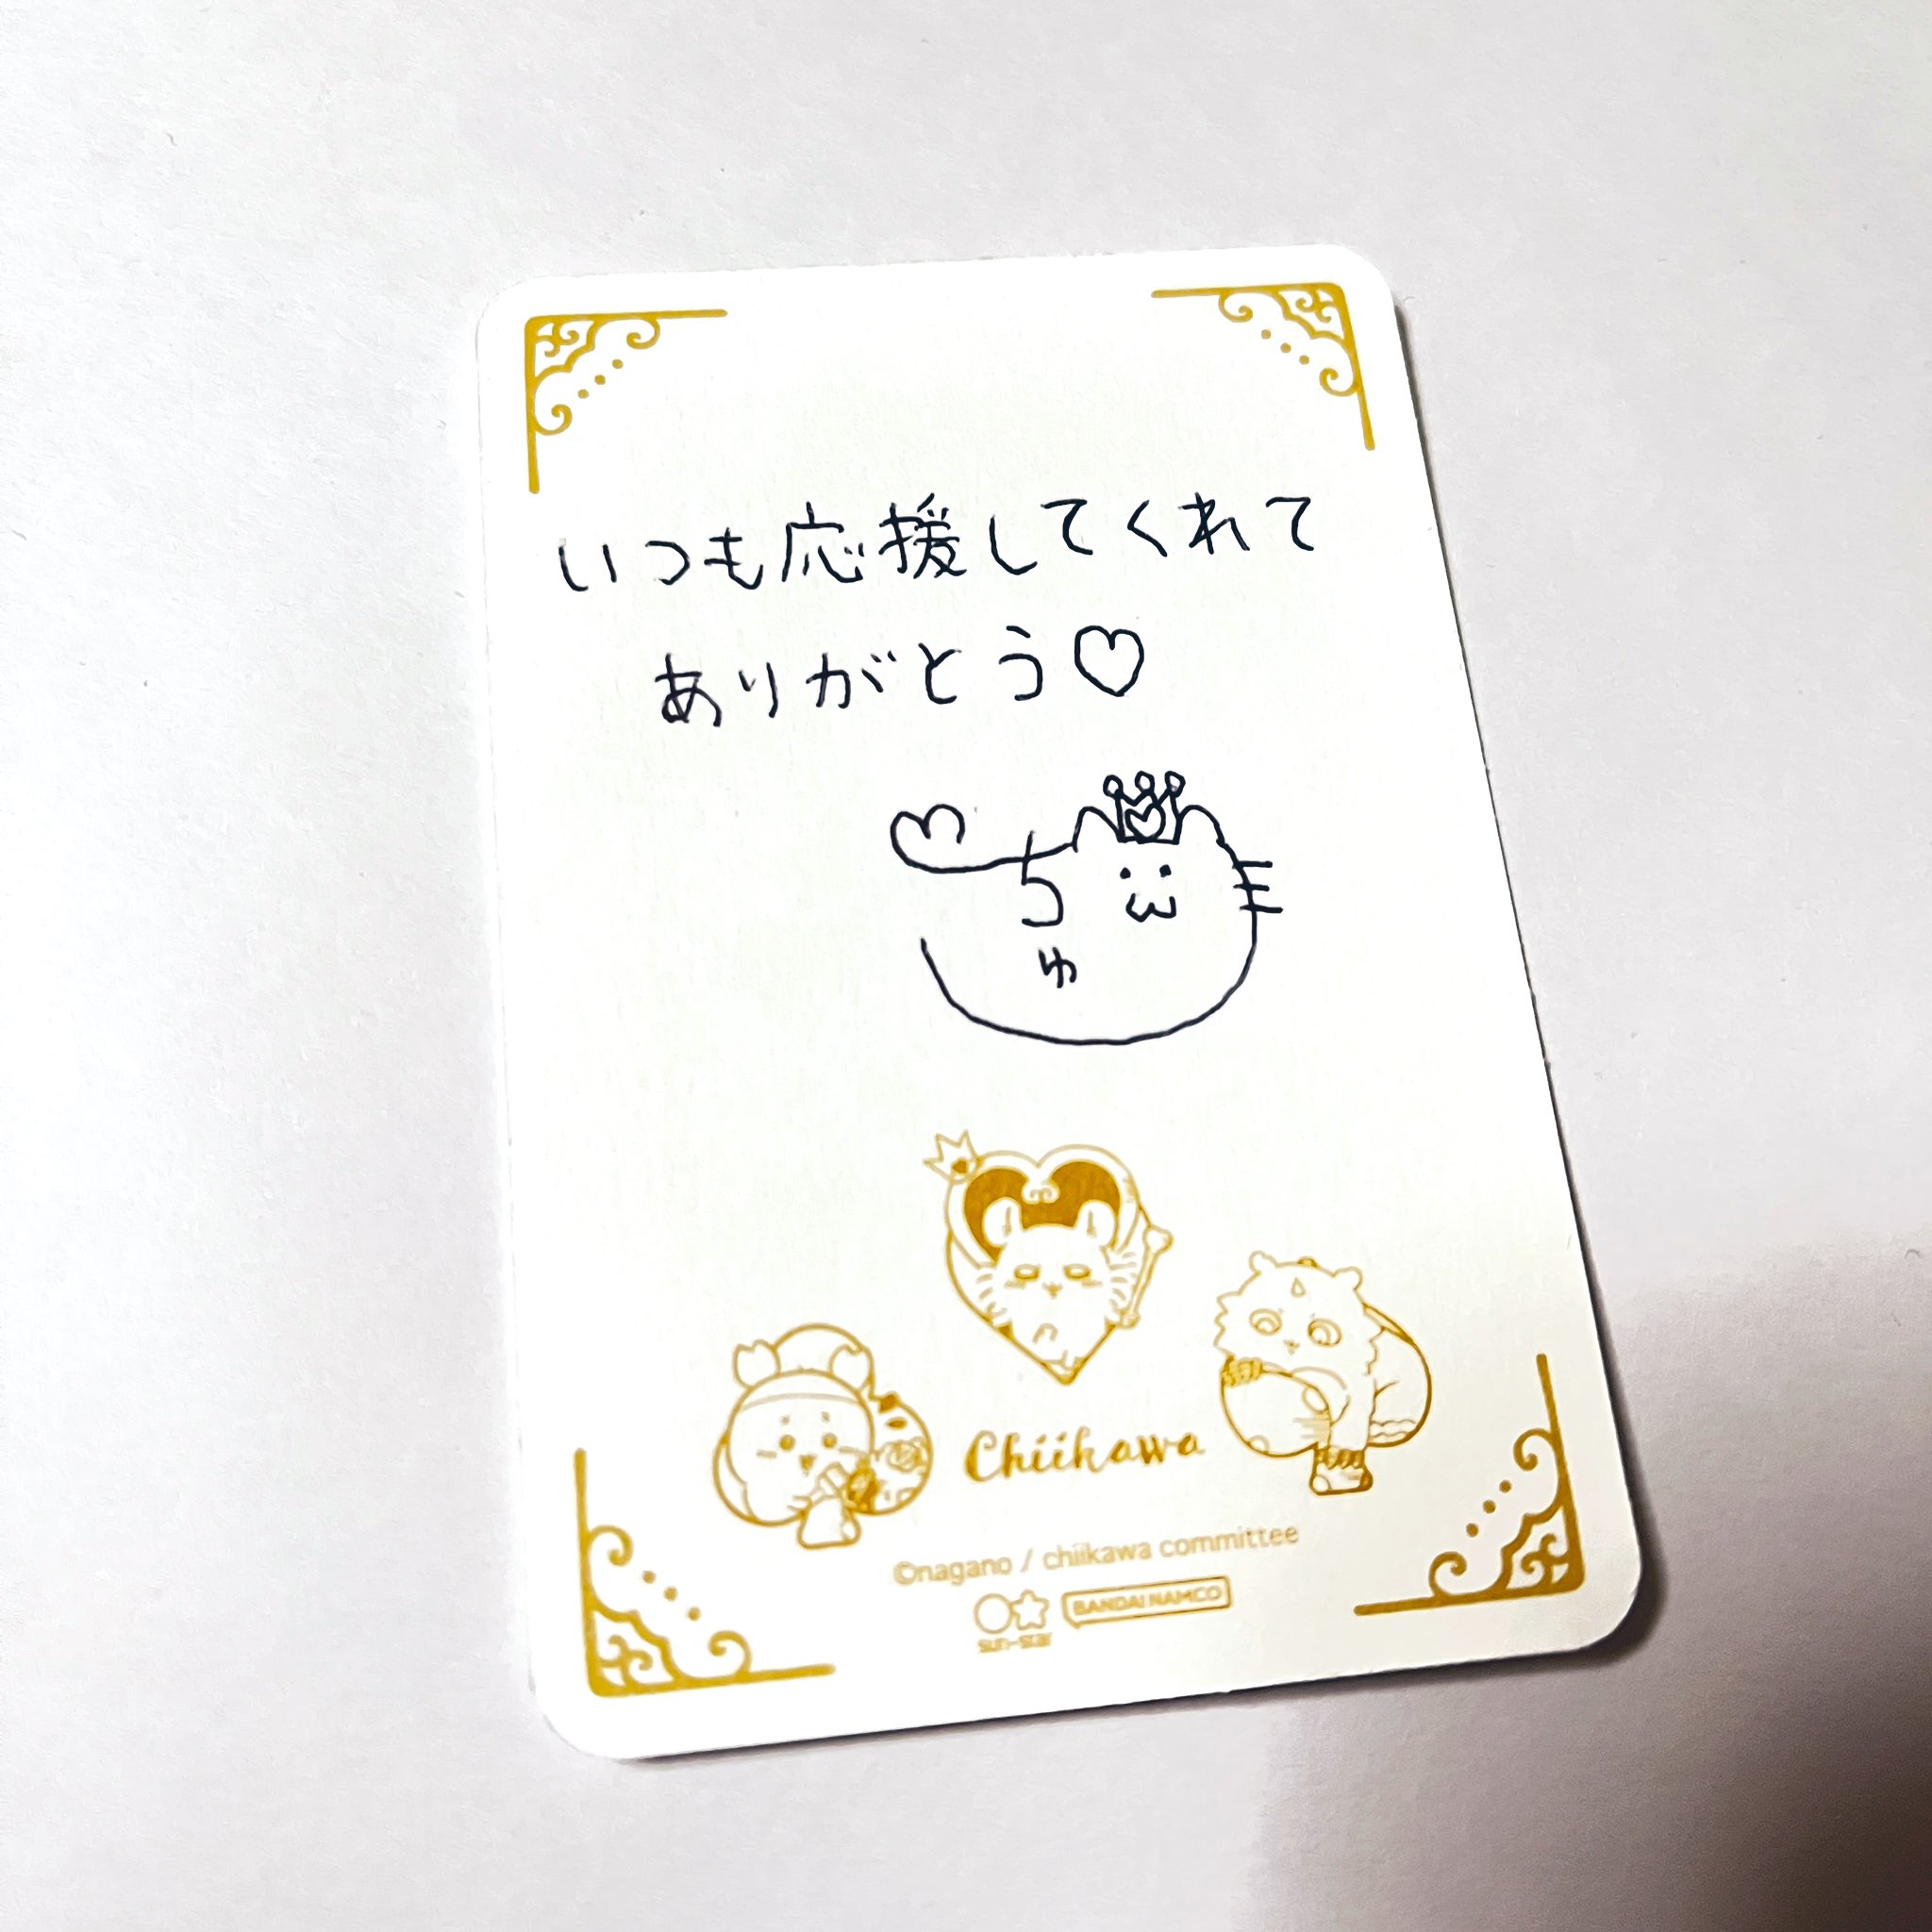 いつも応援してくれて
ありがとう♡
ちゅ
Chiikawa
©nagano / chiikawa committee
sun-star BANDAI NAMCO